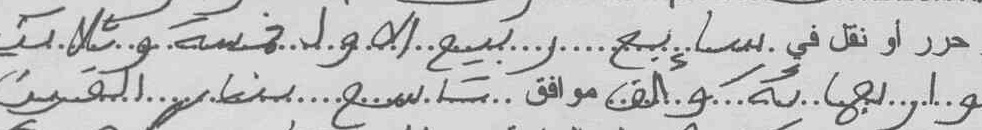 حرر او نقل في سابع ربيع الاول خمسة وثلاثين
واربعمائة والف موافق تاسع يناير الفين